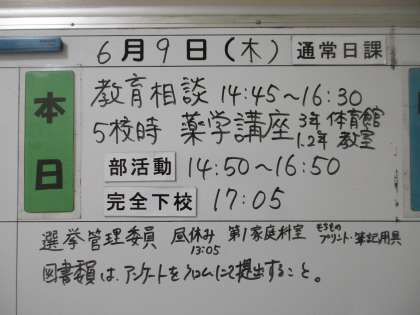 6月9日(木) 通常日課
本日
教育相談 14:45～16:30
5校時 薬学講座 3年 体育館
1.2年 教室
部活動 14:50～16:50
完全下校 17:05
選挙管理委員 昼休み 第1家庭科室 もちもの
13:05 プリント・筆記用具
図書委員は、アンケートをクロムにて提出すること。